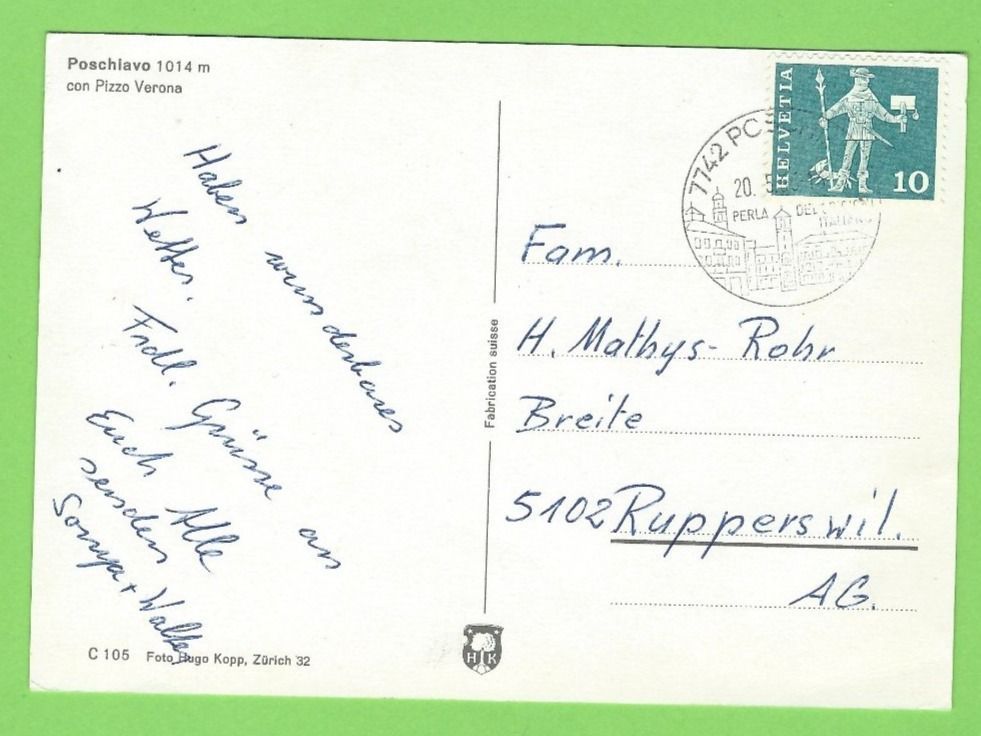 Poschiavo 1014 m
con Pizzo Verona
Haben wunderbares
Wetter.
Frdl. Grüsse an
Euch Alle
senden
Sonya + Walter
C 105 Foto Hugo Kopp, Zürich 32
Fabrication suisse
H K
HELVETIA
10
7742 POS
20. 5
PERLA DEL
Fam.
H. Mathys-Rohr
Breite
5102 Rupperswil.
AG.